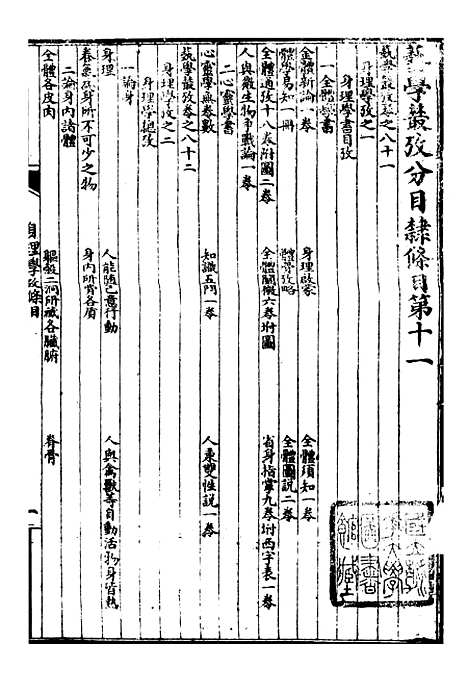 藝學叢攷分目隸條目第十一
藝學叢攷卷之八十一
身理學攷之一
身理學書目攷
一全體學書
全體新論一卷 身理啟蒙 全體須知一卷
體學易知一冊 體骨攷略 全體圖說二卷
全體通攷十八卷附圖二卷 全體闡微六卷坿圖 省身指掌九卷坿西字表一卷
人與微生物爭戰論一卷
二心靈學書
心靈學無卷數 知識五門一卷 人秉雙性說一卷
藝學叢攷卷之八十二
身理學攷之二
身理學總攷
一論身
身理 人能隨己意行動 人與禽獸等自動活物身皆熱
養氣為身所不可少之物 身内所育各質
二論身内諸體
全體各皮肉 軀殼二洞所藏各臟腑 脊骨
身理學攷條目